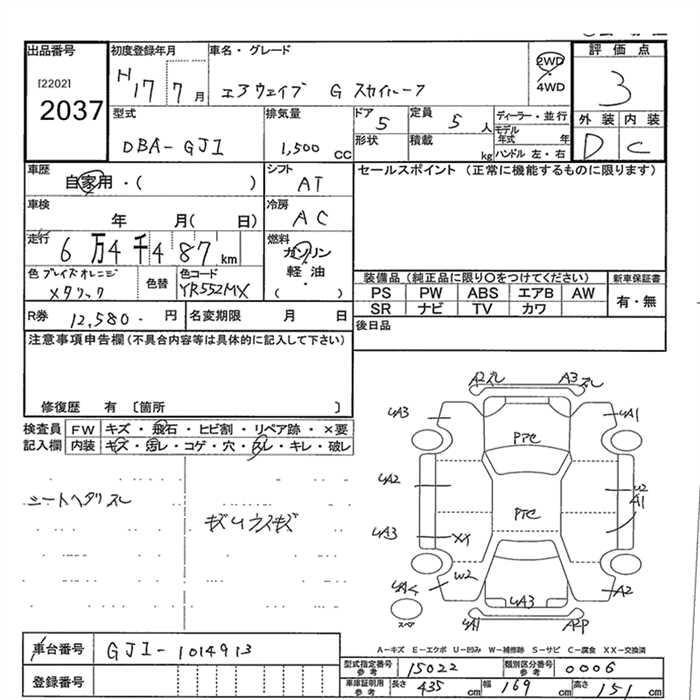 出品番号 初度登録年月 車名・グレード 評価点
[2202]
2037
H17 7月 エアウェイブ G スカイルーフ 2WD・4WD 3
型式 排気量 ドア 定員 ディーラー・並行 外装 内装
DBA-GJ1 1,500cc 5 5人 モデル年式 年 D C
形状 積載 kg ハンドル 左・右
車歴 シフト セールスポイント（正常に機能するものに限ります）
自家用・( ) AT
車検 冷房
年 月( 日) AC
走行 燃料
6万4千487km ガソリン
軽油・
( )
色 ブレイズオレンジ 色替 色コード 装備品（純正品に限り○をつけてください） 新車保証書
メタリック YR552MX PS PW ABS エアB AW 有・無
SR ナビ TV カワ
R券 12,580-円 名変期限 月 日 後日品
注意事項申告欄（不具合内容等は具体的に記入して下さい）
修復歴 有〔箇所 〕
検査員 FW キズ・飛石・ヒビ割・リペア跡・×要
記入欄 内装 キズ・汚レ・コゲ・穴・スレ・キレ・破レ
シートヘタリスレ
キズUウスキズ
A2スレ A3スレ
UA3 UA1
PTC
UA2 U2
A1
PTC
UA3 XX
W2 A2
UA3
スペア UA1 A2P
A－キズ E－エクボ U－凹み W－補修跡 S－サビ C－腐食 XX－交換済
車台番号 GJ1-1014913
登録番号
型式指定番号参考 15022 類別区分番号参考 0006
車庫証明用参考 長さ 435cm 幅 169cm 高さ 151cm